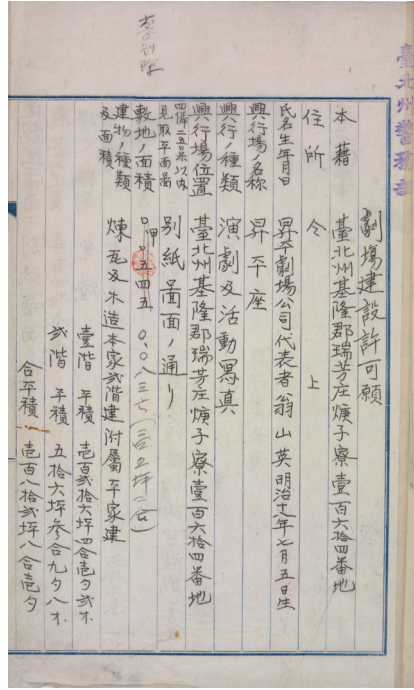 臺北州警務部
劇場建設許可願
本籍 臺北州基隆郡瑞芳庄煉子寮壹百六拾四番地
住所 仝上
氏名生年月日 昇平劇場公司代表者翁山英明治十八年七月五日生
興行場ノ名称 昇平座
興行ノ種類 演劇及活動冩真
興行場位置 臺北州基隆郡瑞芳庄煉子寮壹百六拾四番地
四隣二五〇米以内見取平面圖 別紙圖面ノ通リ
敷地ノ面積 〇甲〇五四五 〇、〇八三六
建物ノ種類及面積 煉瓦及木造本家貳階建附屬平家建
壹階 平積 壹百貳拾六坪四合壹夕貳才
貳階 平積 五拾六坪参合九夕八才
合平積 壹百八拾貳坪八合壹夕